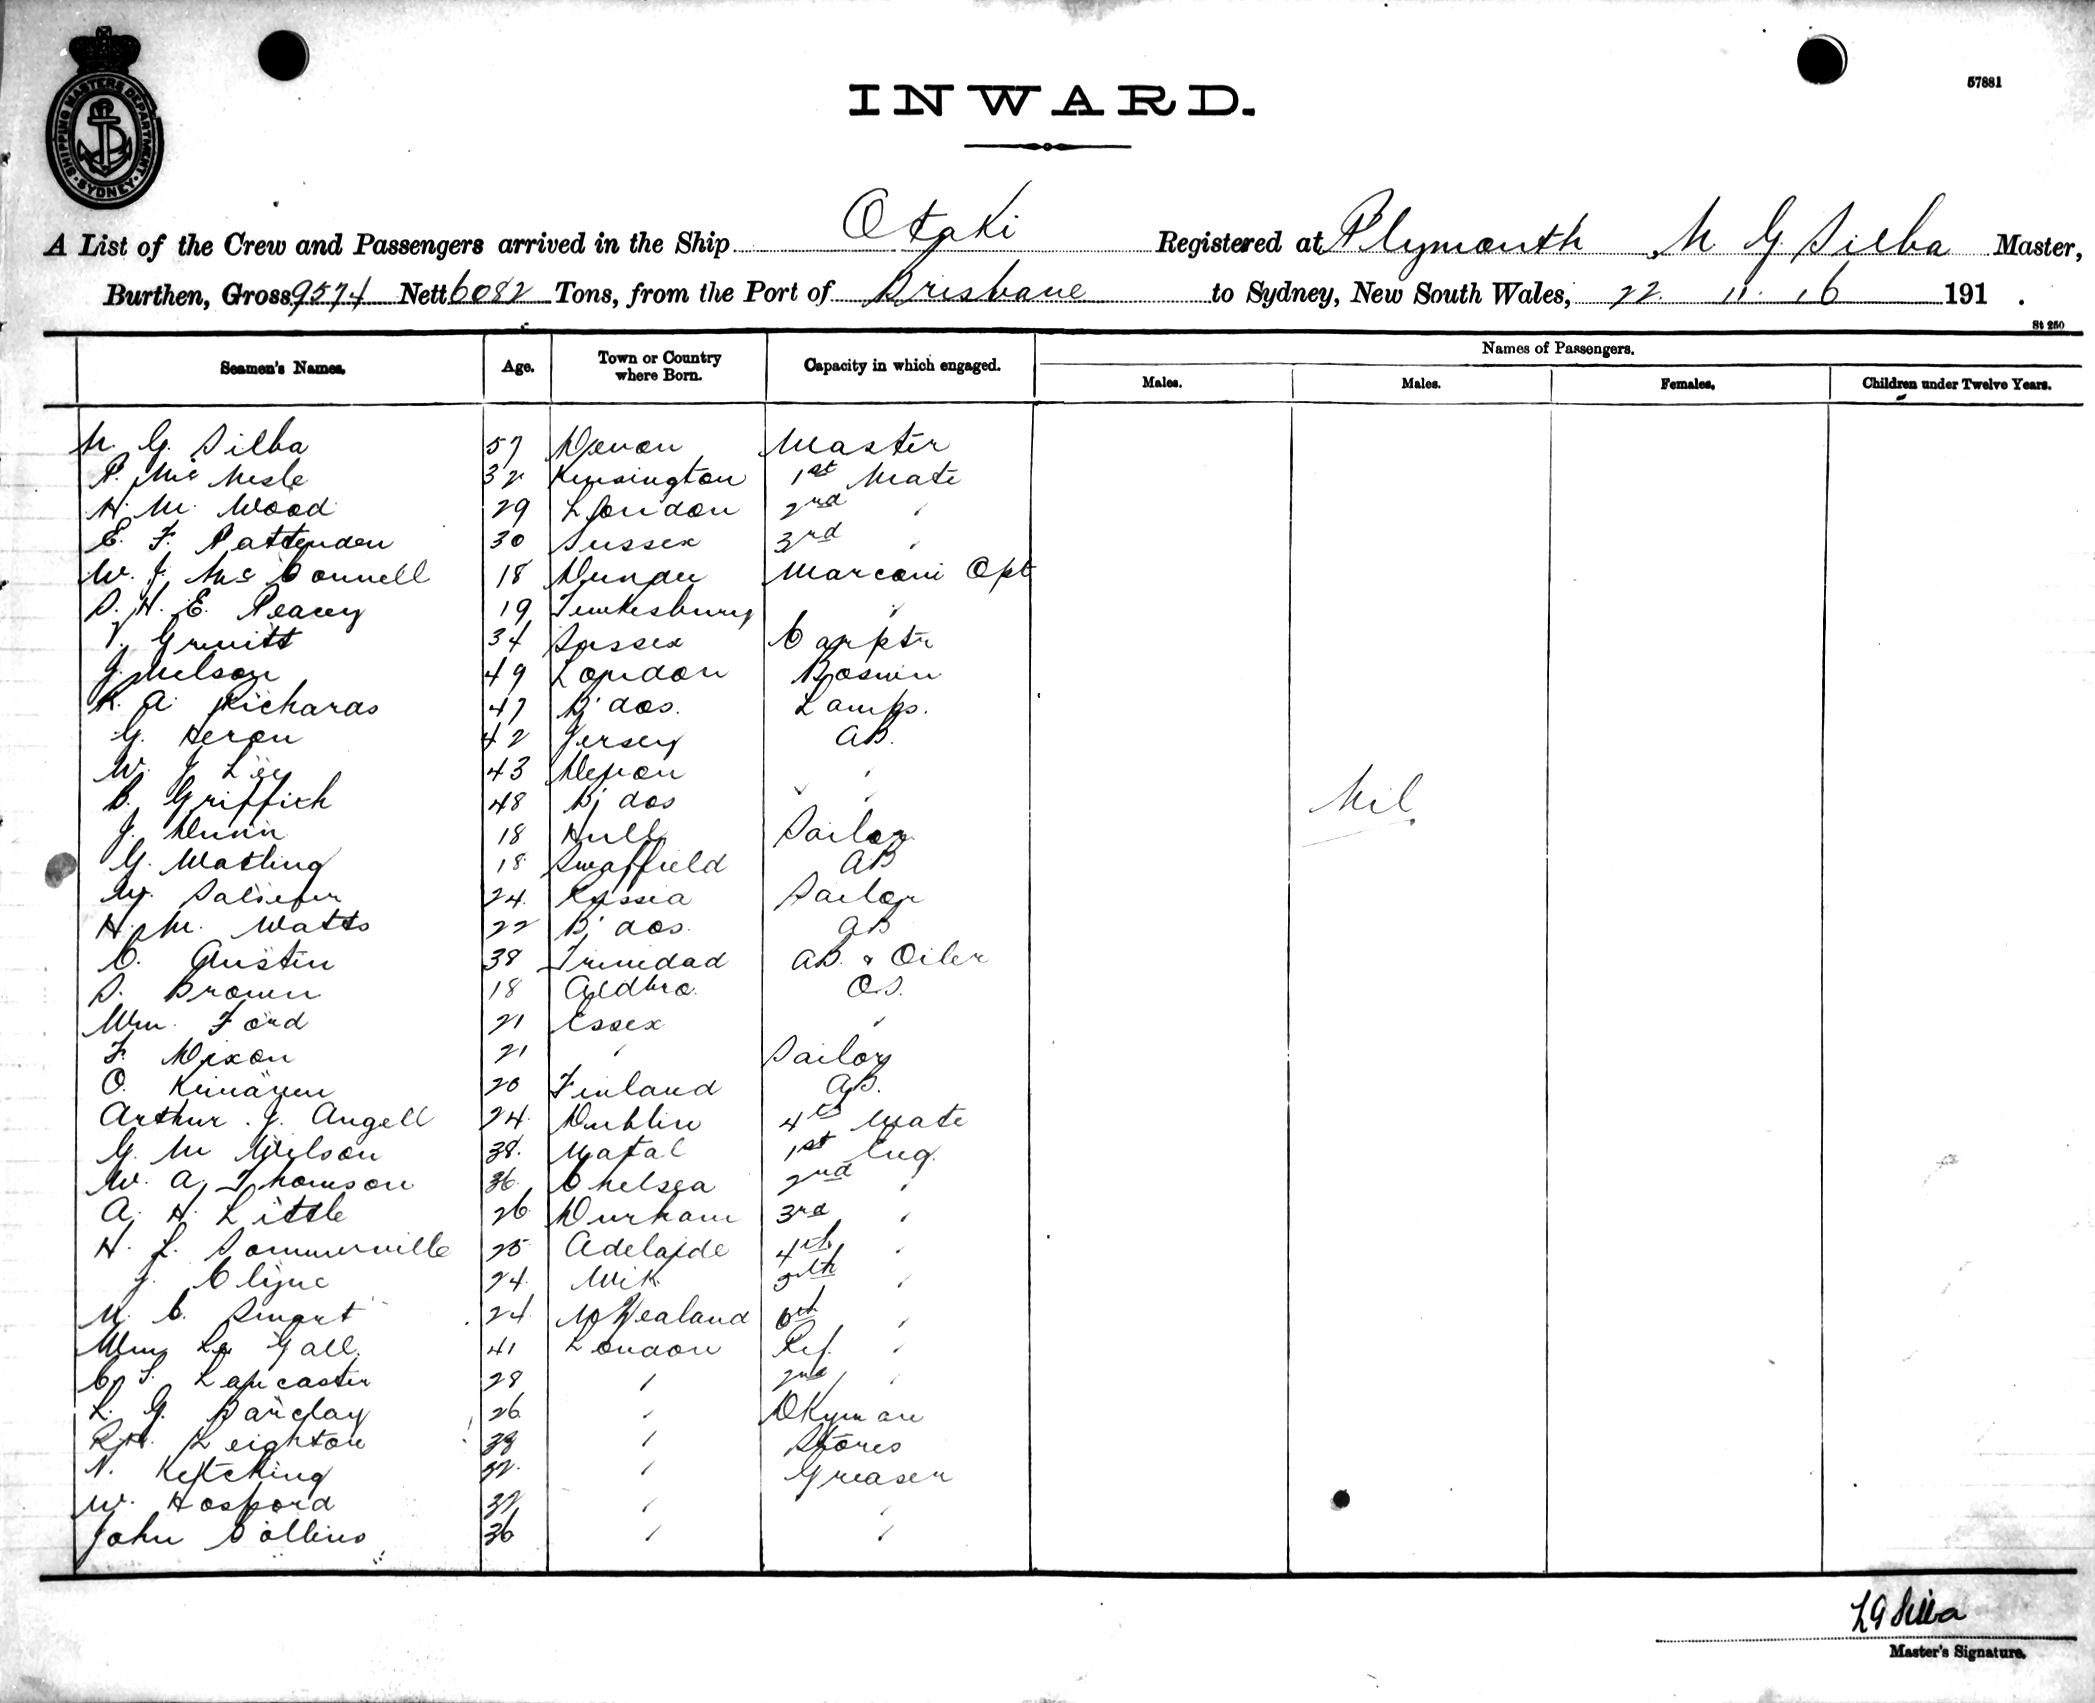 SHIPPING MASTERS DEPARTMENT. SYDNEY.
57881
INWARD.
A List of the Crew and Passengers arrived in the Ship Otaki Registered at Plymouth, N G Silba Master,
Burthen, Gross 9574 Nett 6082 Tons, from the Port of Brisbane to Sydney, New South Wales, 22. 11. 16 191 .
St 250
Seamen's Names. Age. Town or Country where Born. Capacity in which engaged. Names of Passengers.
Males. Males. Females. Children under Twelve Years.
N. G. Silba 57 Devon Master
P. Mc Nesle 32 Kensington 1st Mate
H. M. Wood 29 London 2nd "
E. F. Pattenden 30 Sussex 3rd "
W. J. Mc Connell 18 Dundee Marconi Opt
S. H. E. Peacey 19 Tewkesbury "
Gruitt 34 Sussex Carptr
J. Nelson 49 London Boswn
R. A. Richards 47 B'dos. Lamps.
G. Heron 42 Jersey AB.
W. J. Lee 43 Devon "
B. Griffich 48 B'dos " "
J. Dunn 18 Hull Sailor
G. Watling 18 Swaffield AB
W. 24 Russia Sailor
H. M. Watts 22 B'dos. AB
C. Austin 38 Trinidad AB. & Oiler
S. Brown 18 Aldbro. OS.
Wm. Ford 21 Essex "
F. Dixon 21 " Sailor
O. 20 Finland AB.
Arthur. J. Angell 24 Dublin 4th Mate
G. M Wilson 38. Natal 1st Eng.
W. A. Thomson 36 Chelsea 2nd "
A. H. Little 26 Durham 3rd "
H. L. Sommerville 25 Adelaide 4th "
J. Clyne 24 Wik 5th "
N. C. Smart 24 N Zealand 6th "
Wm Le Gall. 41 London Ref. "
C. S. Lancaster 28 " 2nd "
L. G. Barclay 26 " DKyman
R. H. Leighton 38 " Stores
N. Kitching 32 " Greaser
W. Hosford 32 " "
John Collins 36 " "
Nil.
L G Silba
Master's Signature.